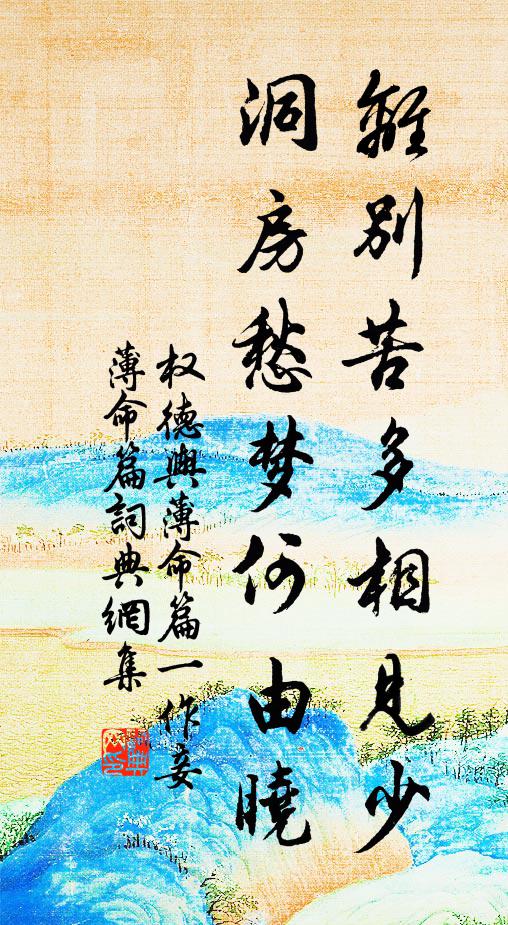 離別苦多相見少
洞房愁梦何由曉
权德輿薄命篇一作妾
薄命篇詞典網集